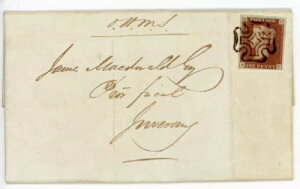 O.H.M.S.
James Macdonald Esq
Pror fiscal
Inverary
POSTAGE
ONE PENNY